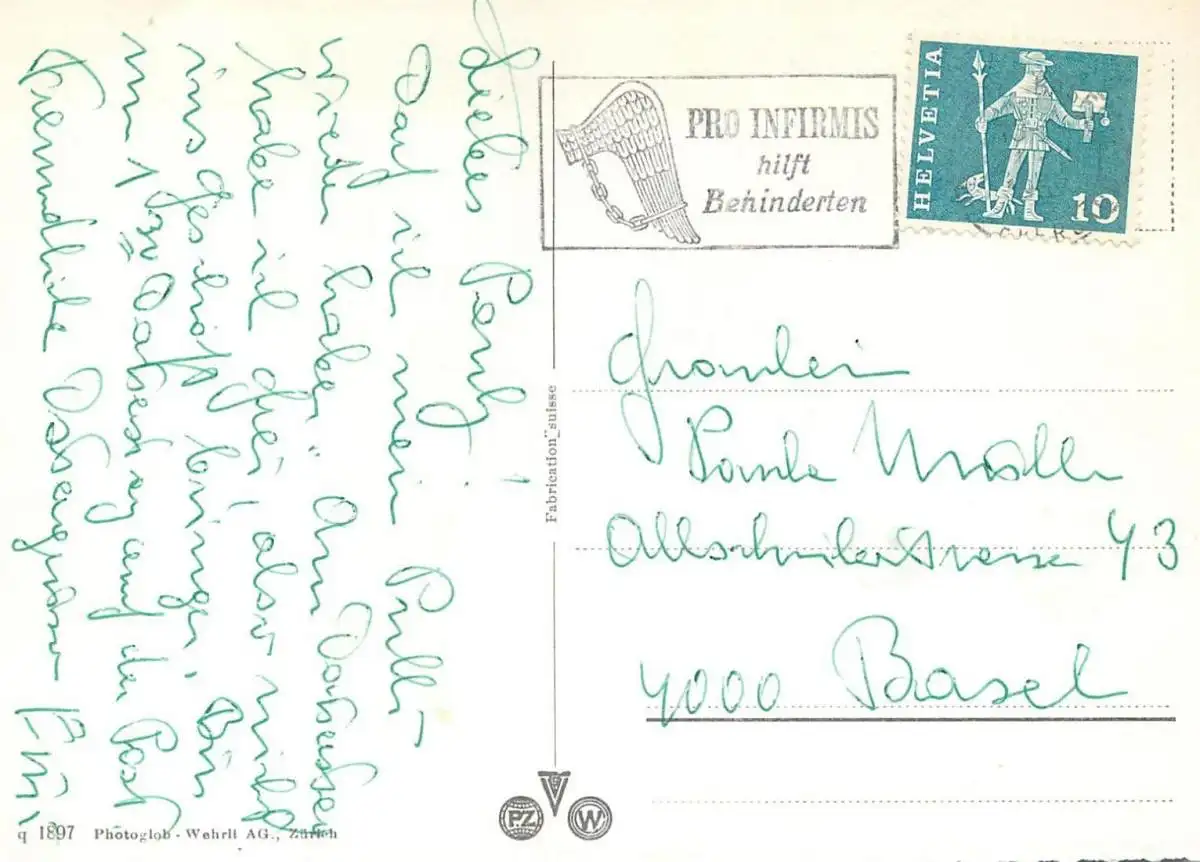 Liebes Pauli!
Darf ich mein Pulli
wieder haben? Am Donnerstag
habe ich frei, also nicht
ins Geschäft bringen. Bin
um 1 Donnerstag auf der Post
Freundliche Ostergrüsse
PRO INFIRMIS
hilft
Behinderten
HELVETIA
10
Fräulein
Paula
Allschwilerstrasse 43
4000 Basel
Fabrication suisse
PZ
W
q 1897 Photoglob-Wehrli AG., Zürich